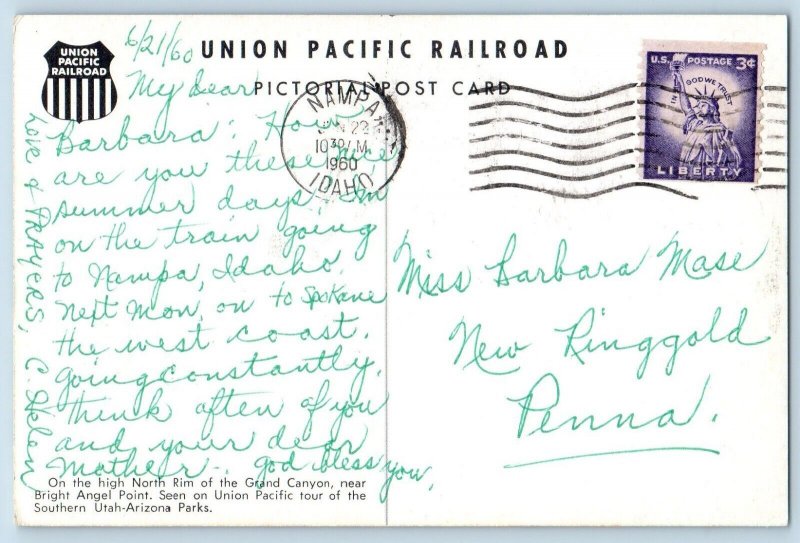 UNION PACIFIC RAILROAD
6/21/60
UNION PACIFIC RAILROAD
PICTORIAL POST CARD
U.S. POSTAGE 3¢
IN GOD WE TRUST
LIBERTY
NAMPA
JUN 22
10 30 AM
1960
IDAHO
My dear
Barbara: How
are you these nice
summer days. I'm
on the train going
to Nampa, Idaho.
Next Mon, on to Spokane
the west coast.
Going constantly.
think often of you
and your dear
Mother -. God bless you,
Love & PRAYERS, C. Helen
Miss Barbara Mase
New Ringgold
Penna.
On the high North Rim of the Grand Canyon, near
Bright Angel Point. Seen on Union Pacific tour of the
Southern Utah-Arizona Parks.